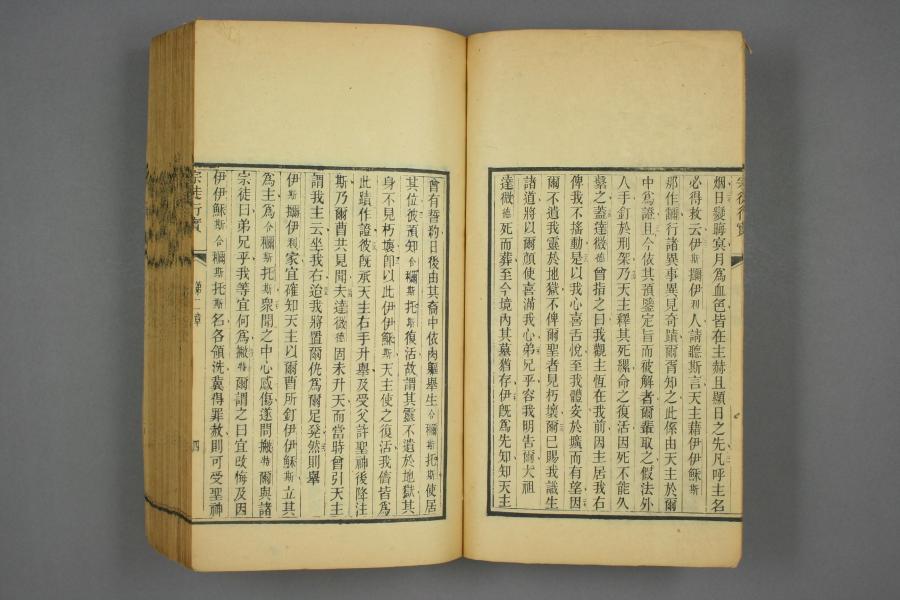 烟日變晦冥月爲血色皆在主赫且顯日之先凡呼主名
必得救云伊斯擩伊利人請聽斯言天主藉伊伊穌斯
那作諦行諸異事異見奇蹟爾曹知之此係由天主於爾
中爲證且今依其預鑒定旨而被解者爾輩取之假法外
人手釘於刑架乃天主釋其死纍命之復活因死不能久
繫之蓋達微德曾指之曰我觀主恆在我前因主居我右
俾我不搖動是以我心喜舌悅至我體妥於壙而有望因
爾不遺我靈於地獄不俾爾聖者見朽壞爾已賜我識生
諸道將以爾顏使喜滿我心弟兄乎容我明告爾大祖
達微德死而葬至今境內其墓猶存伊旣爲先知知天主
曾有誓約日後由其裔中依肉軀舉生合穪斯托斯使居
其位彼預知合穪斯托斯復活故謂其靈不遺於地獄其
身不見朽壞卽以此伊伊穌斯天主使之復活我儕皆爲
此蹟作證彼旣承天主右手升舉及受父許聖神後降注
斯乃爾曹共見聞夫達微德固未升天而當時曾引天主
謂我主云坐我右迨我將置爾仇爲爾足凳然則舉
伊斯擩伊利家宜確知天主以爾曹所釘伊伊穌斯立其
爲主爲合穪斯托斯衆聞之中心感傷遂問撇特爾與諸
宗徒曰弟兄乎我等宜何爲撇特爾謂之曰宜改悔及因
伊伊穌斯合穪斯托斯名各領洗冀得罪赦則可受聖神
宗徒行實
第二章
四